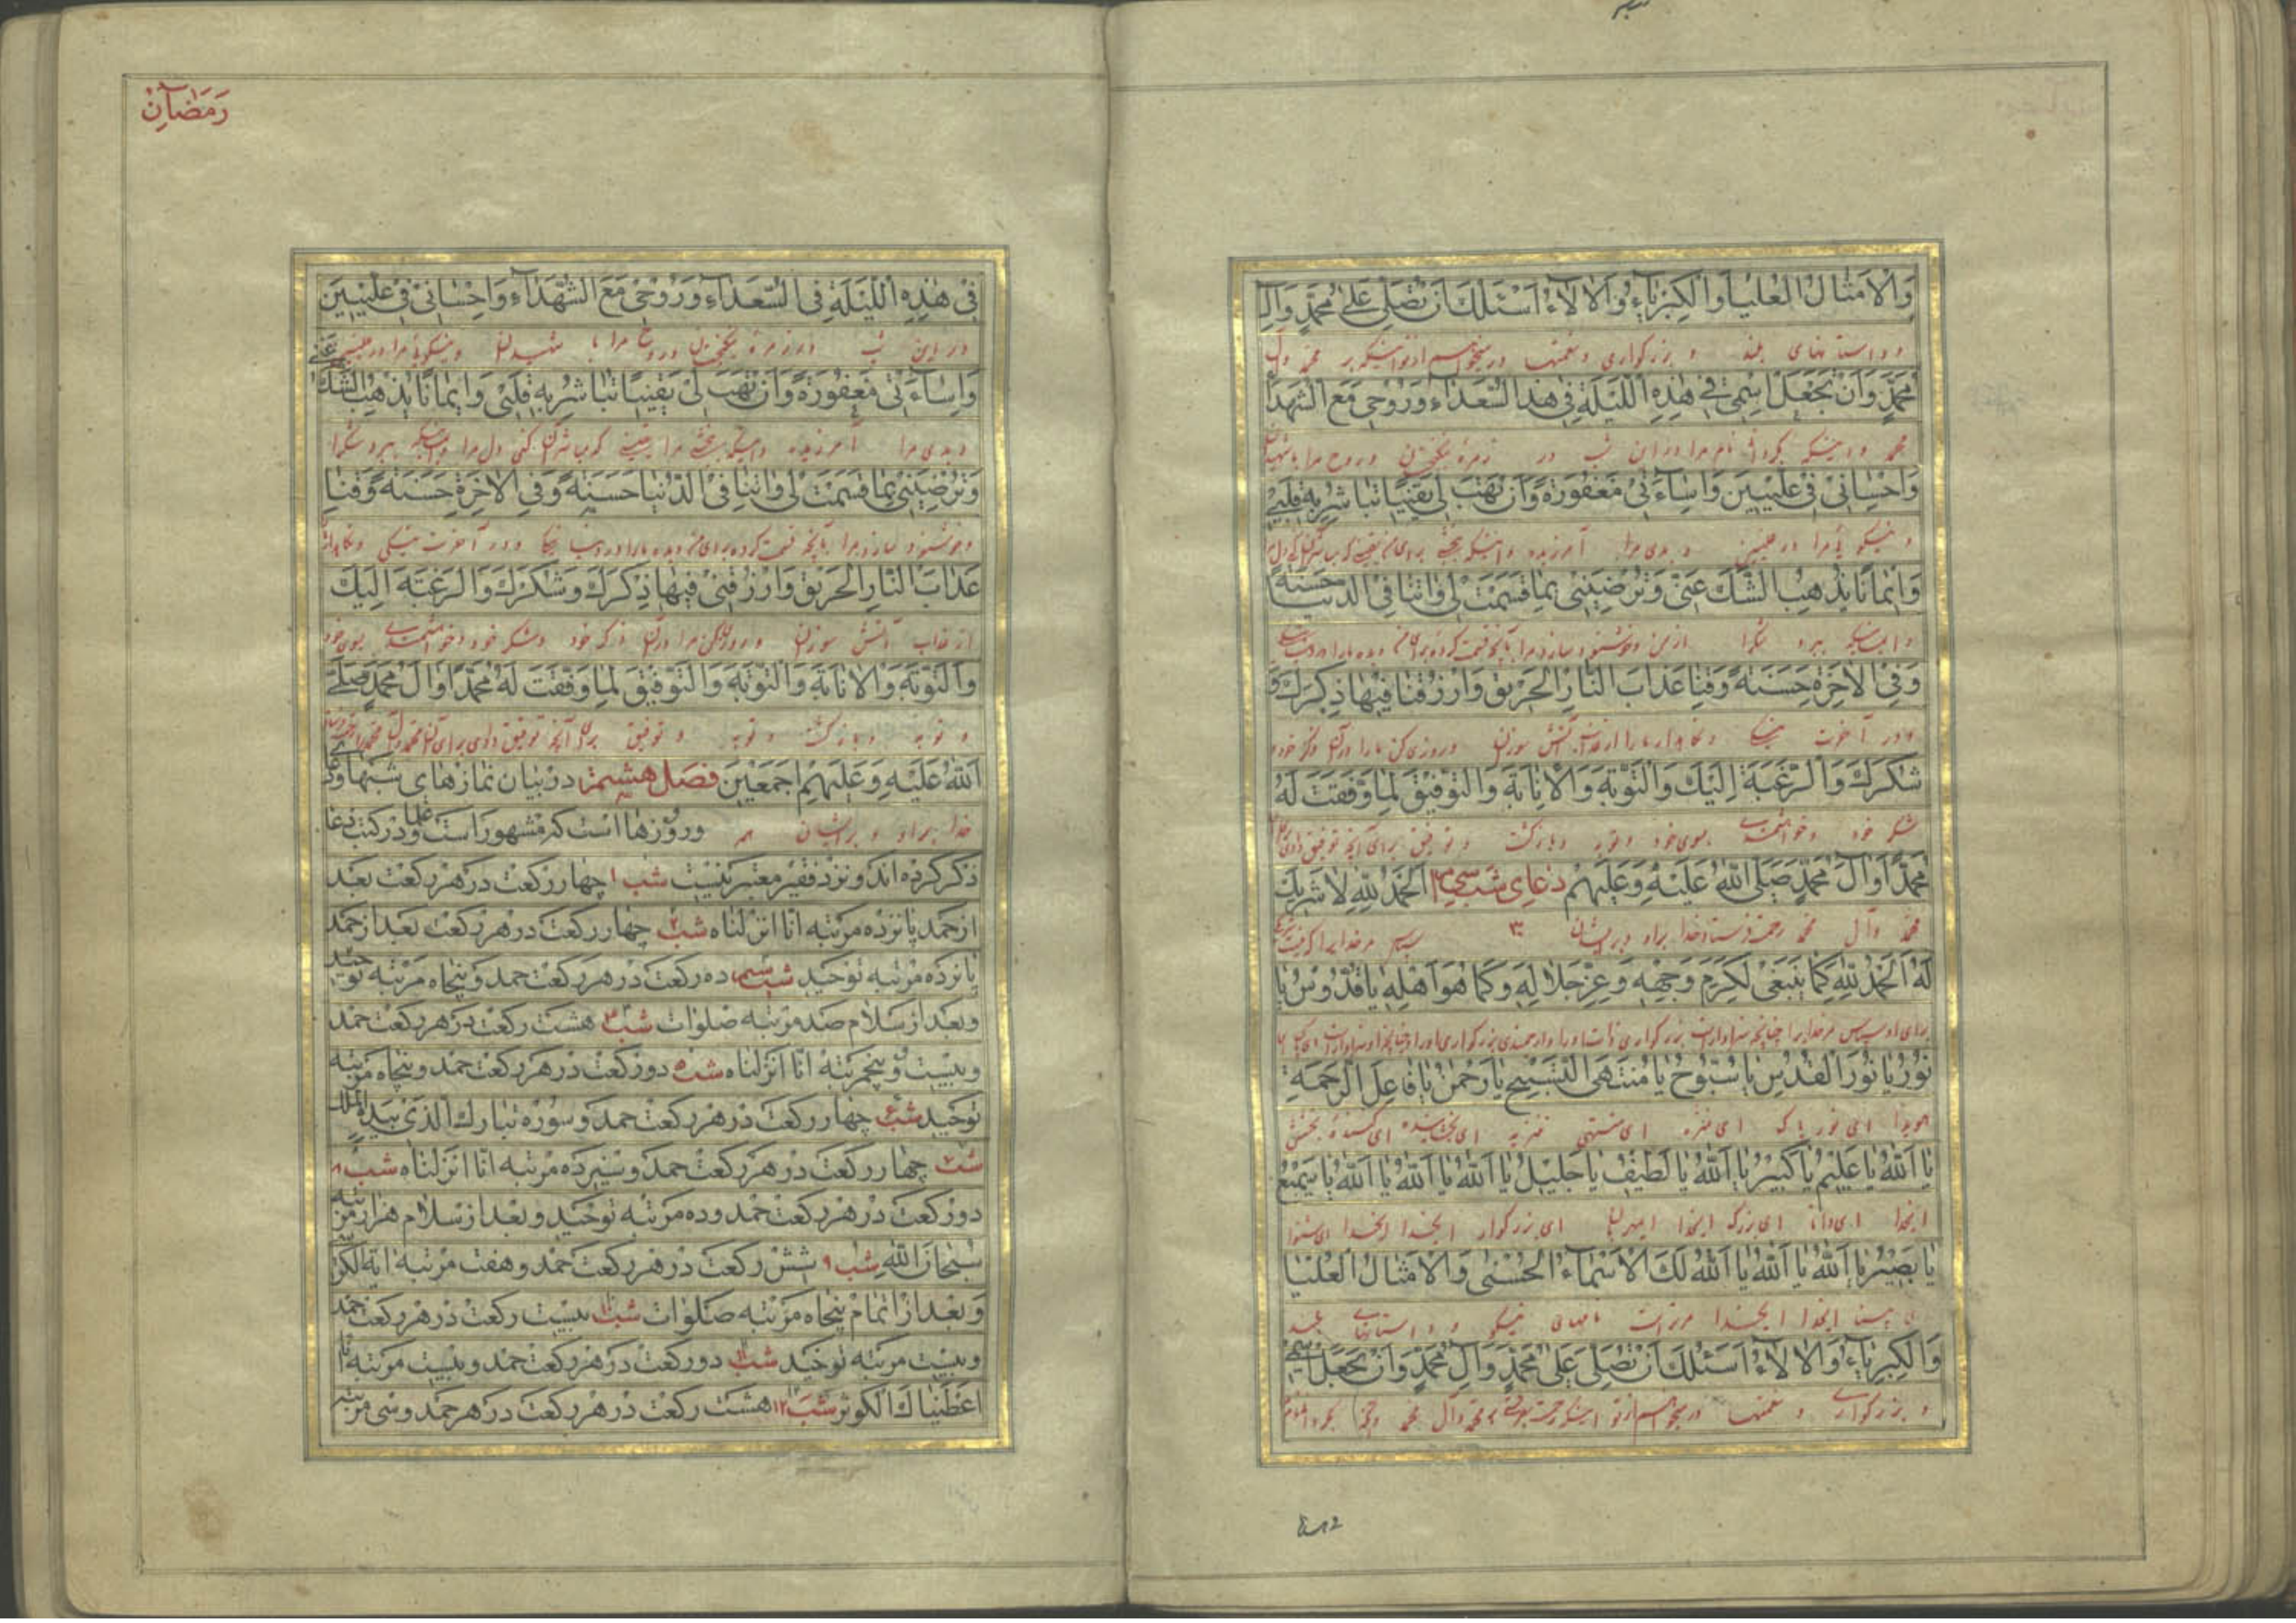 وَالْاَمْثالُ الْعُلْیا وَالْکِبْرِیآءُ وَالْالآءُ اَسْئَلُكَ اَنْ تُصَلِّیَ عَلی مُحَمَّدٍ وَالِ
و داستانهای بلند و بزرگواری و نعمتها درمیخواهم از تو اینکه بر محمد و آل
مُحَمَّدٍ وَاَنْ تَجْعَلَ اسْمی فی هٰذِهِ اللَّیْلَةِ فی هذا السُّعَدآءِ وَرُوحی مَعَ الشُّهَدآ
محمد و اینکه بگردانی نام مرا در این شب در زمرهٔ نیکبختان و روح مرا با شهیدان
وَاِحْسانی فی عِلِّیّینَ وَاِسآءَتی مَغْفُورَةً وَاَنْ تَهَبَ لی یَقینًا تُباشِرُ بِهِ قَلْبی
و نیکوئی مرا در علیین و بدی مرا آمرزیده و اینکه بخشی برای من یقینی که
وَایمانًا یَذْهَبُ الشَّكَّ عَنّی وَتُرْضِیَنی بِما قَسَمْتَ لی وَاتِنا فِی الدُّنْیا حَسَنَةً
و ایمانیکه ببرد شک را از من و خوشنود سازی مرا بآنچه قسمت کرده برای من و بده ما را در دنیا
وَفِی الْاخِرَةِ حَسَنَةً وَقِنا عَذابَ النّارِ الْحَریقِ وَارْزُقْنا فیها ذِکْرَكَ وَ
و در آخرت نیکی و نگاهدار ما را از عذاب آتش سوزان و روزی کن ما را در آن ذکر خود و
شُکْرَكَ وَالرَّغْبَةَ اِلَیْكَ وَالتَّوْبَةِ وَالْاِنابَةَ وَالتَّوْفیقَ لِما وَفَّقْتَ لَهُ
شکر خود و خواهشمندی بسوی خود و توبه و بازگشت و توفیق برای آنچه توفیق دادی
مُحَمَّدًا وَالَ مُحَمَّدٍ صَلَّی اللهُ عَلَیْهِ وَعَلَیْهِمْ دُعای شب سی‌ام اَلْحَمْدُ لِلّٰهِ لا شَریكَ
محمد و آل محمد رحمت فرستد خدا بر او و بر ایشان سپاس مر خدایرا که نیست
لَهُ اَلْحَمْدُ لِلّٰهِ کَما یَنْبَغی لِکَرَمِ وَجْهِهِ وَعِزِّ جَلالِهِ وَکَما هُوَ اَهْلُهُ یا قُدُّوسُ یا
برای او سپاس مر خدایرا چنانچه سزاوار است بزرگواری ذات او را و ارجمندی بزرگواری او را و چنانچه او سزاوار است ای پاک ای
نُورُ یا نُورَ الْقُدْسِ یا سُبُّوحُ یا مُنْتَهَی التَّسْبیحِ یا رَحْمٰنُ یا فاعِلَ الرَّحْمَةِ
هویدا ای نور پاک ای منزه ای منتهی تنزیه ای بخشاینده ای کننده بخشش
یا اَللهُ یا عَلیمُ یا کَبیرُ یا اَللهُ یا لَطیفُ یا جَلیلُ یا اَللهُ یا اَللهُ یا اَللهُ یا سَمیعُ
ایخدا ای دانا ای بزرگ ایخدا ای بزرگوار ایخدا ایخدا ای شنوا
یا بَصیرُ یا اَللهُ یا اَللهُ یا اَللهُ لَكَ الْاَسْمآءُ الْحُسْنی وَالْاَمْثالُ الْعُلْیا
ای بینا ایخدا ایخدا مر تراست نامهای نیکو و داستانهای بلند
وَالْکِبْرِیآءُ وَالْالآءُ اَسْئَلُكَ اَنْ تُصَلِّیَ عَلی مُحَمَّدٍ وَالِ مُحَمَّدٍ وَاَنْ تَجْعَلَ اسْمی
و بزرگواری و نعمتها درمیخواهم از تو اینکه رحمت بفرستی بر محمد و آل محمد
رَمَضآنْ
فی هٰذِهِ اللَّیْلَةِ فِی السُّعَدآءِ وَرُوحی مَعَ الشُّهَدآءِ وَاِحْسانی فی عِلِّیّینَ
در این شب در زمرهٔ نیکبختان و روح مرا با شهیدان و نیکوئی مرا در علیین
وَاِسآءَتی مَغْفُورَةً وَاَنْ تَهَبَ لی یَقینًا تُباشِرُ بِهِ قَلْبی وَایمانًا یَذْهَبُ الشَّكَّ عَنّی
و بدی مرا آمرزیده و اینکه بخشی مرا یقینی که مباشر آن کنی دل مرا و ایمانیکه ببرد شک را
وَتُرْضِیَنی بِما قَسَمْتَ لی وَاتِنا فِی الدُّنْیا حَسَنَةً وَفِی الْاخِرَةِ حَسَنَةً وَقِنا
و خوشنود سازی مرا بآنچه قسمت کرده برای من و بده ما را در دنیا نیکی و در آخرت نیکی و نگاهدار
عَذابَ النّارِ الْحَریقِ وَارْزُقْنی فیها ذِکْرَكَ وَشُکْرَكَ وَالرَّغْبَةَ اِلَیْكَ
از عذاب آتش سوزان و روزی کن مرا در آن ذکر خود و شکر خود و خواهشمندی بسوی خود
وَالتَّوْبَةِ وَالْاِنابَةِ وَالتَّوْبَةِ وَالتَّوْفیقَ لِما وَفَّقْتَ لَهُ مُحَمَّدًا وَالَ مُحَمَّدٍ صَلَّی
و توبه و بازگشت و توبه و توفیق برای آنچه توفیق دادی برای آن محمد و آل محمد
اللهُ عَلَیْهِ وَعَلَیْهِمْ اَجْمَعینَ فصل هشتم در بیان نمازهای شبها
خدا بر او و بر ایشان همه و روزها است که مشهور است و در کتب دعا
ذکر کرده‌اند و نزد فقیر معتبر نیست شب ۱ چهار رکعت در هر رکعت بعد
از حمد پانزده مرتبه انا انزلناه شب ۲ چهار رکعت در هر رکعت بعد از حمد
پانزده مرتبه توحید شب سیم ده رکعت در هر رکعت حمد و پنجاه مرتبه توحید
و بعد از سلام صد مرتبه صلوات شب ۴ هشت رکعت در هر رکعت حمد
و بیست و پنجمرتبه انا انزلناه شب ۵ دو رکعت در هر رکعت حمد و پنجاه مرتبه
توحید شب ۶ چهار رکعت در هر رکعت حمد و سوره تبارك الذی بیده الملك
شب ۷ چهار رکعت در هر رکعت حمد و سیزده مرتبه انا انزلناه شب ۸
دو رکعت در هر رکعت حمد و ده مرتبه توحید و بعد از سلام هزار مرتبه
سبحان الله شب ۹ شش رکعت در هر رکعت حمد و هفت مرتبه ایة الکر
و بعد از اتمام پنجاه مرتبه صلوات شب ۱۰ بیست رکعت در هر رکعت حمد
و بیست مرتبه توحید شب ۱۱ دو رکعت در هر رکعت حمد و بیست مرتبه انا
اعطیناك الکوثر شب ۱۲ هشت رکعت در هر رکعت در هر حمد و سی مرتبه